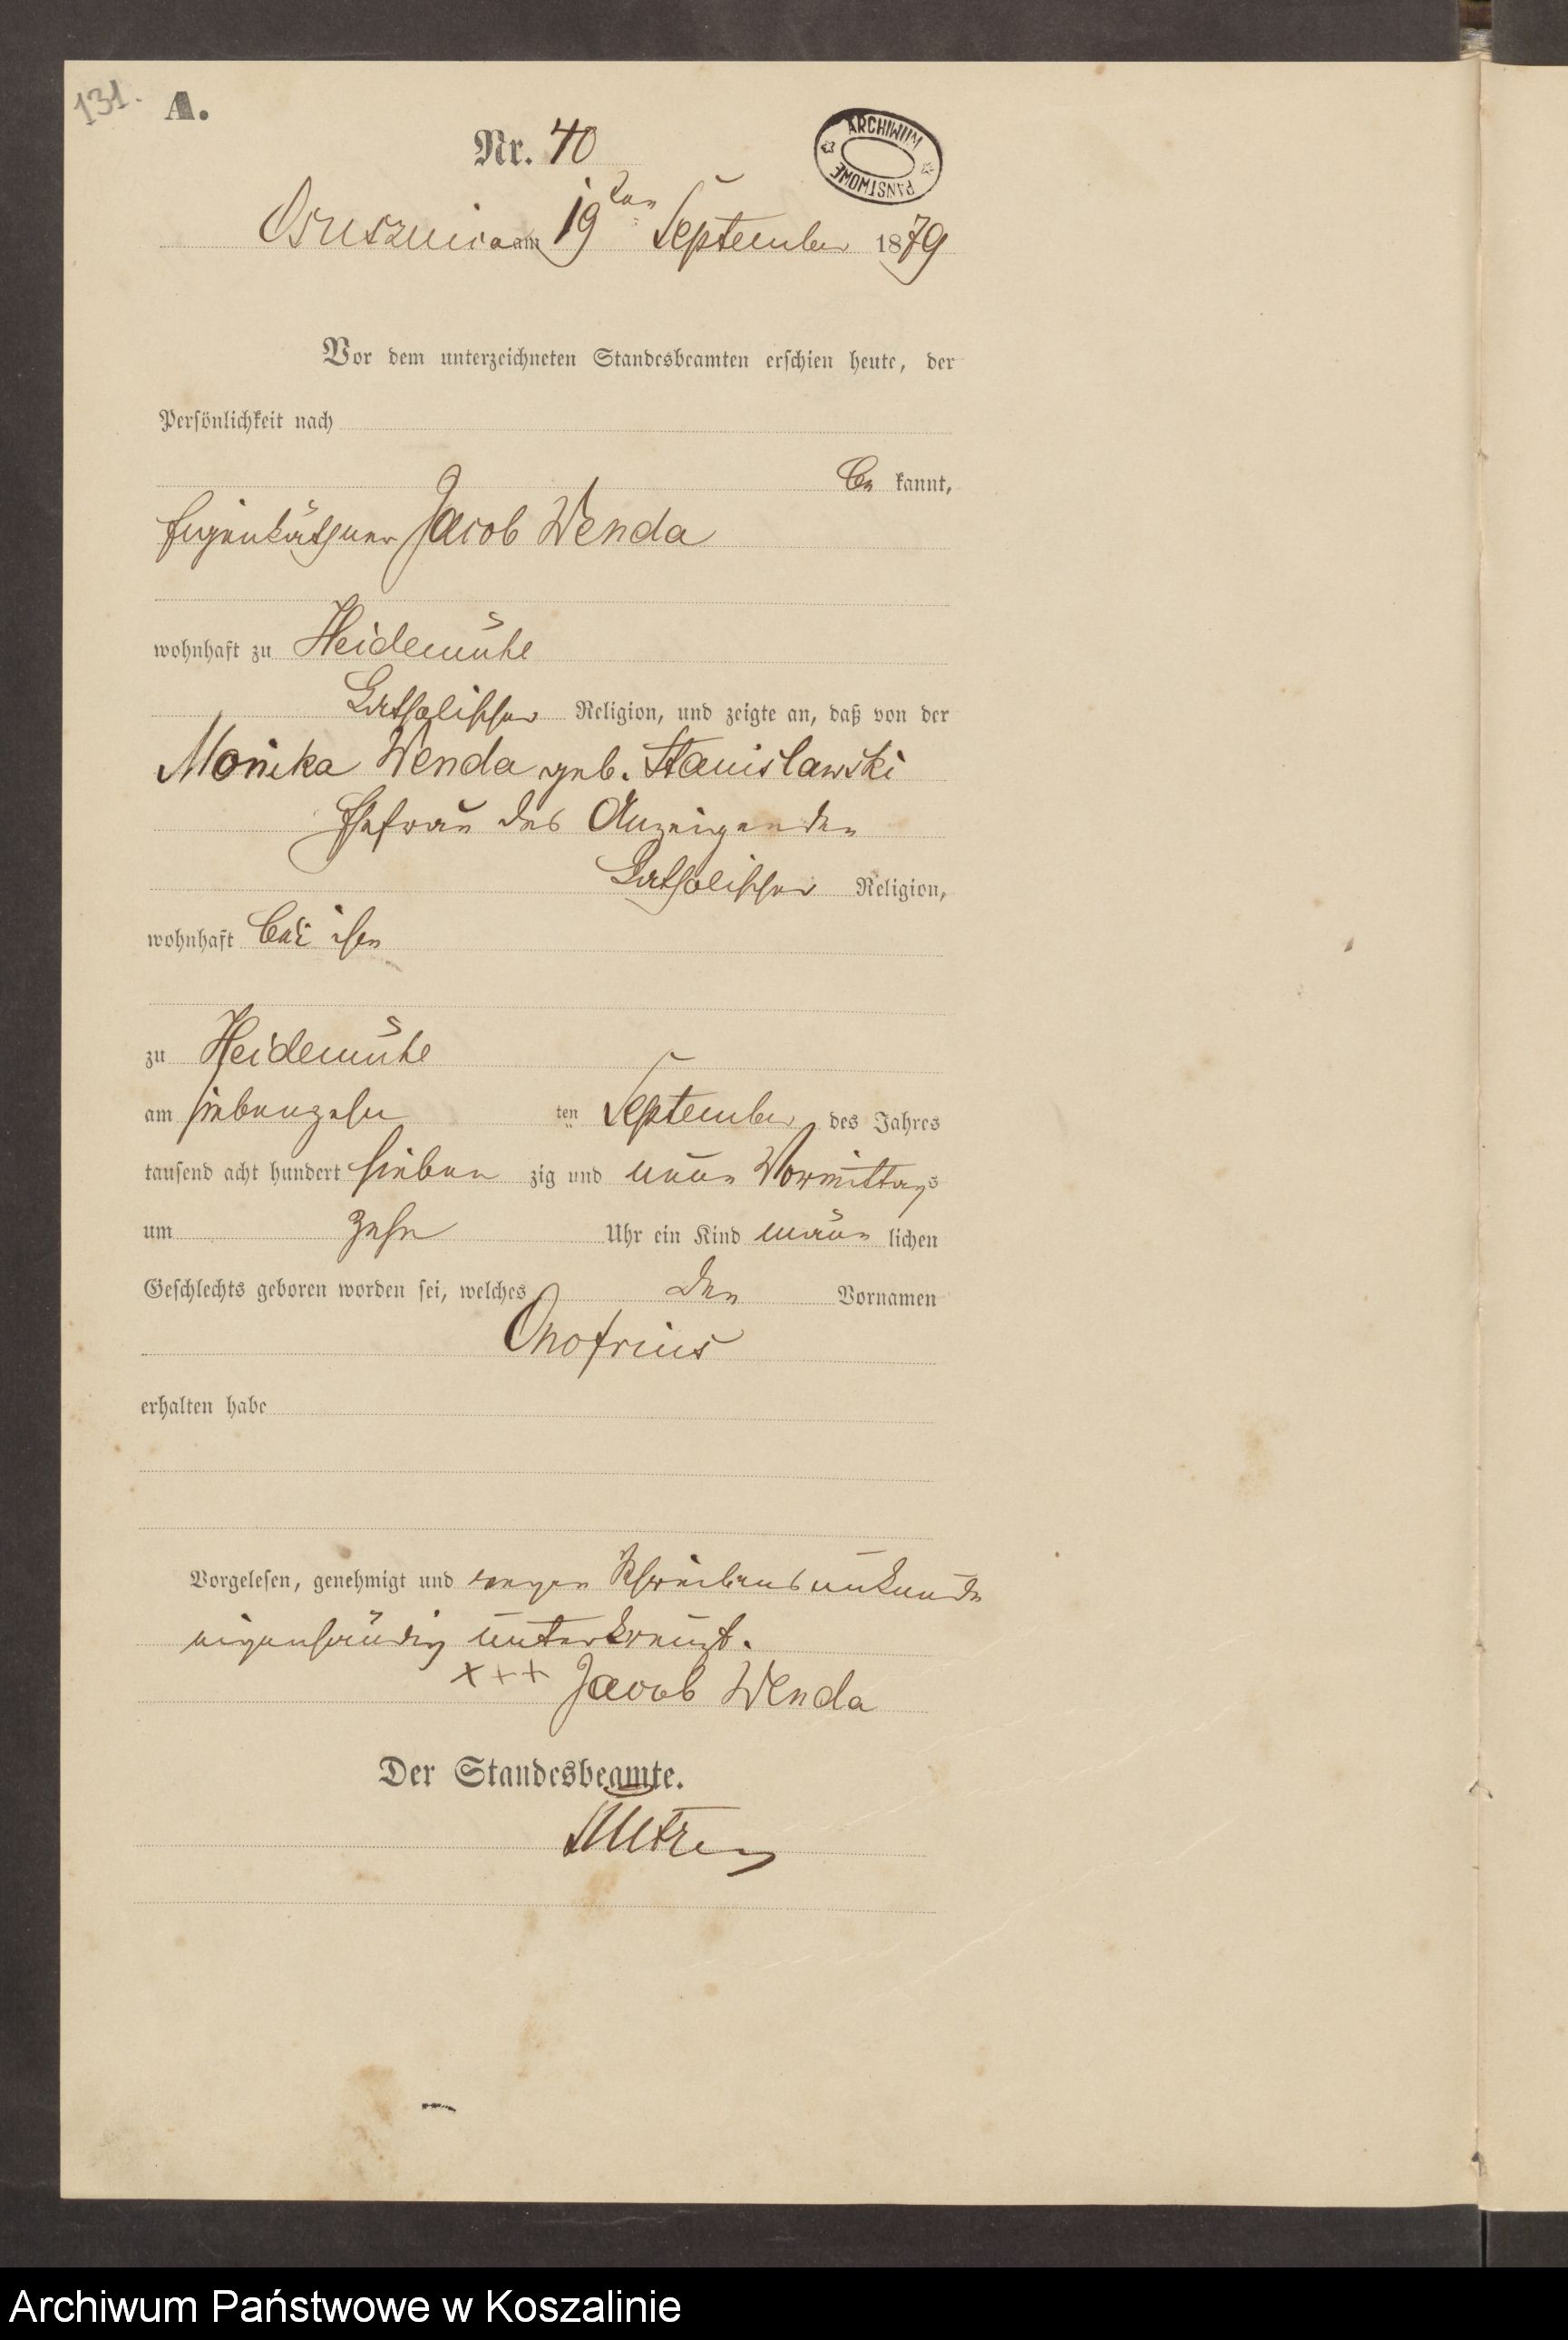 131.
A.
Nr. 40
ARCHIWUM PAŃSTWOWE
Osusznica am 19ten September 1879
Vor dem unterzeichneten Standesbeamten erschien heute, der
Persönlichkeit nach
be kannt,
Eigenkäthner Jacob Wenda
wohnhaft zu Heidemühe
katholischer Religion, und zeigte an, daß von der
Monika Wenda geb. Stanislawski
Ehefrau des Anzeigenden
katholischer Religion,
wohnhaft bei ihm
zu Heidemühe
am siebenzehn ten September des Jahres
tausend acht hundert sieben zig und neun Vormittags
um zehn Uhr ein Kind männ lichen
Geschlechts geboren worden sei, welches den Vornamen
Onofrius
erhalten habe
Vorgelesen, genehmigt und wegen Schreibensunkunde
eigenhändig unterkreuzt.
xxx Jacob Wenda
Der Standesbeamte.
Archiwum Państwowe w Koszalinie